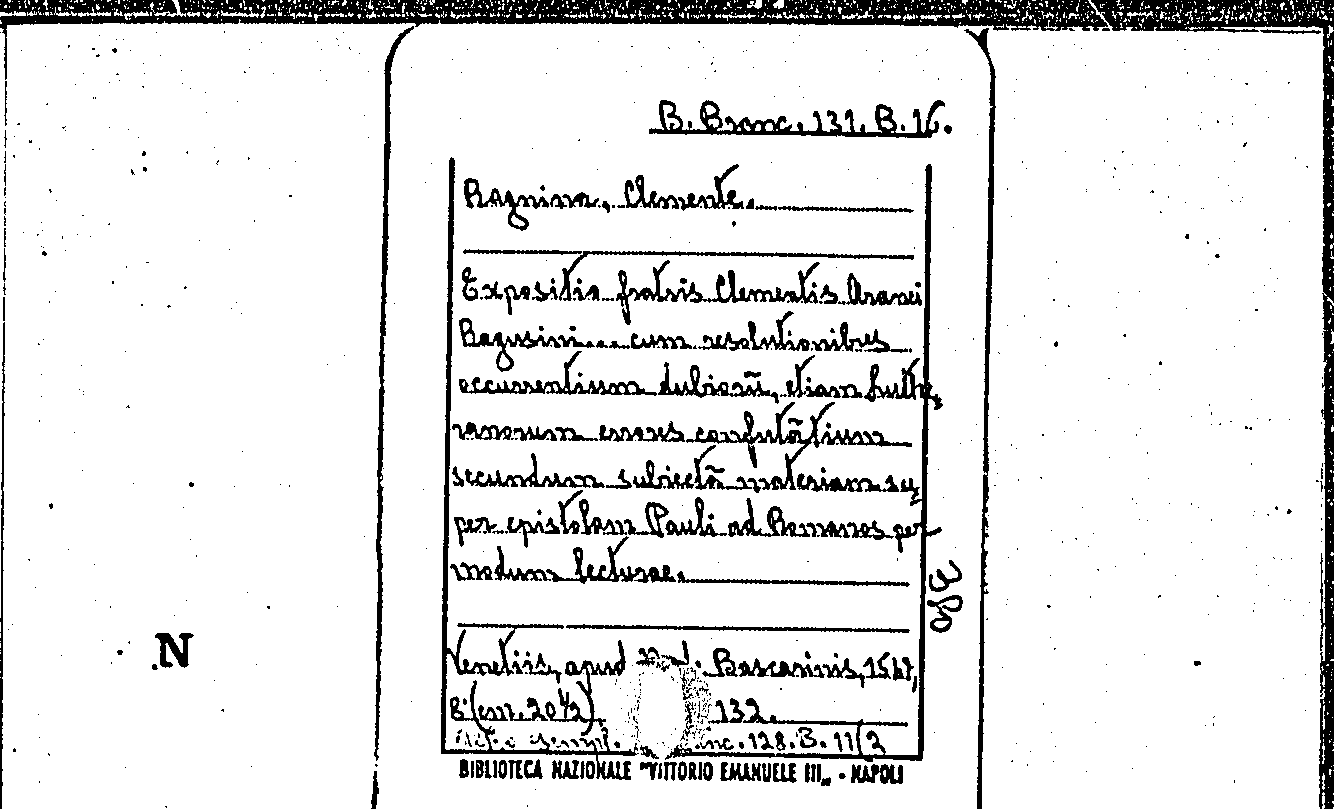 B. Branc. 131. B. 16.
Ragnina, Clemente.
Expositio fratris Clementis Aranei
Ragusini... cum resolutionibus
occurrentium dubiorũ, etiam Luthe,
ranorum errores confutãtium
secundum subiectã materiam su,
per epistolam Pauli ad Romanos per
modum lecturae.
380
N
Venetiis, apud Bascarinis, 1547,
8° (cm. 20 1/2). 132.
128. B. 11(2
BIBLIOTECA NAZIONALE "VITTORIO EMANUELE III„ - NAPOLI